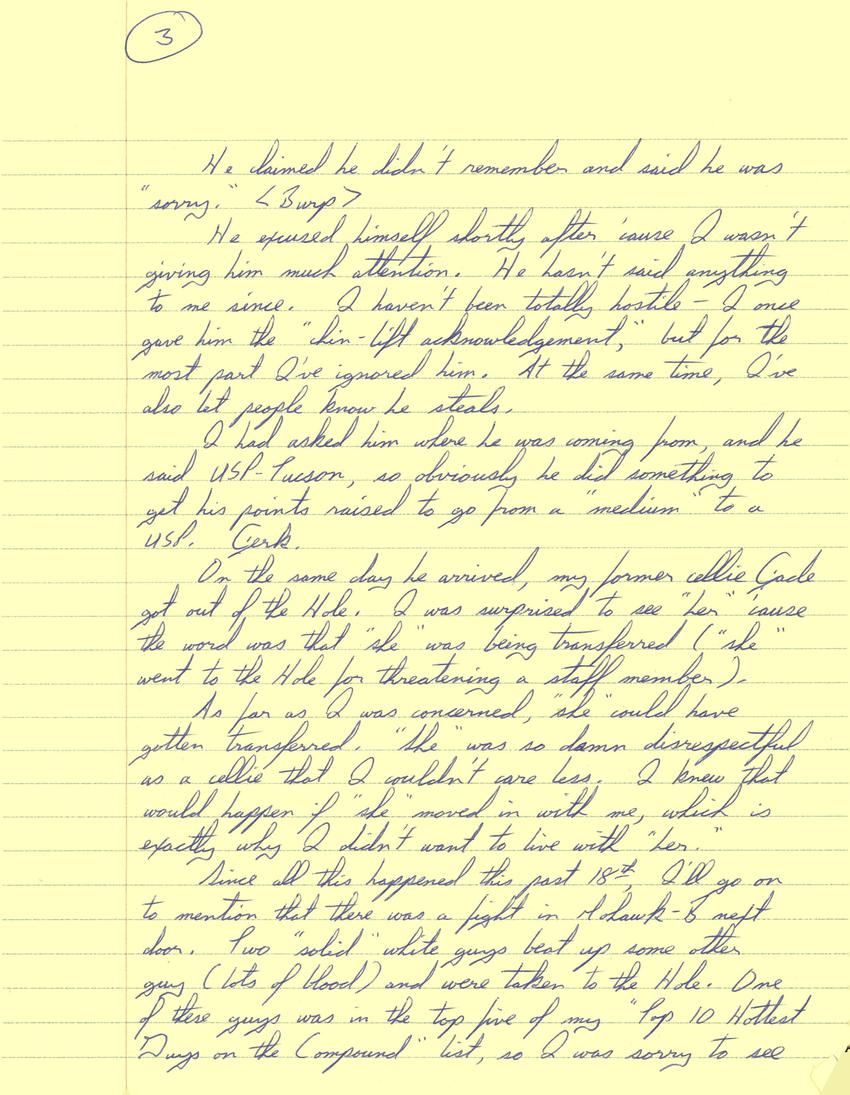 3
He claimed he didn't remember and said he was
"sorry." <Burp>
He excused himself shortly after 'cause I wasn't
giving him much attention. He hasn't said anything
to me since. I haven't been totally hostile – I once
gave him the "chin-lift acknowledgement," but for the
most part I've ignored him. At the same time, I've
also let people know he steals.
I had asked him where he was coming from, and he
said USP-Tucson, so obviously he did something to
get his points raised to go from a "medium" to a
USP. Jerk.
On the same day he arrived, my former cellie Jade
got out of the Hole. I was surprised to see "her" 'cause
the word was that "she" was being transferred ("she"
went to the Hole for threatening a staff member).
As far as I was concerned, "she" could have
gotten transferred. "She" was so damn disrespectful
as a cellie that I couldn't care less. I knew that
would happen if "she" moved in with me, which is
exactly why I didn't want to live with "her."
Since all this happened this past 18th, I'll go on
to mention that there was a fight in Mohawk-B next
door. Two "solid" white guys beat up some other
guy (lots of blood) and were taken to the Hole. One
of these guys was in the top five of my "Top 10 Hottest
Guys on the Compound" list, so I was sorry to see